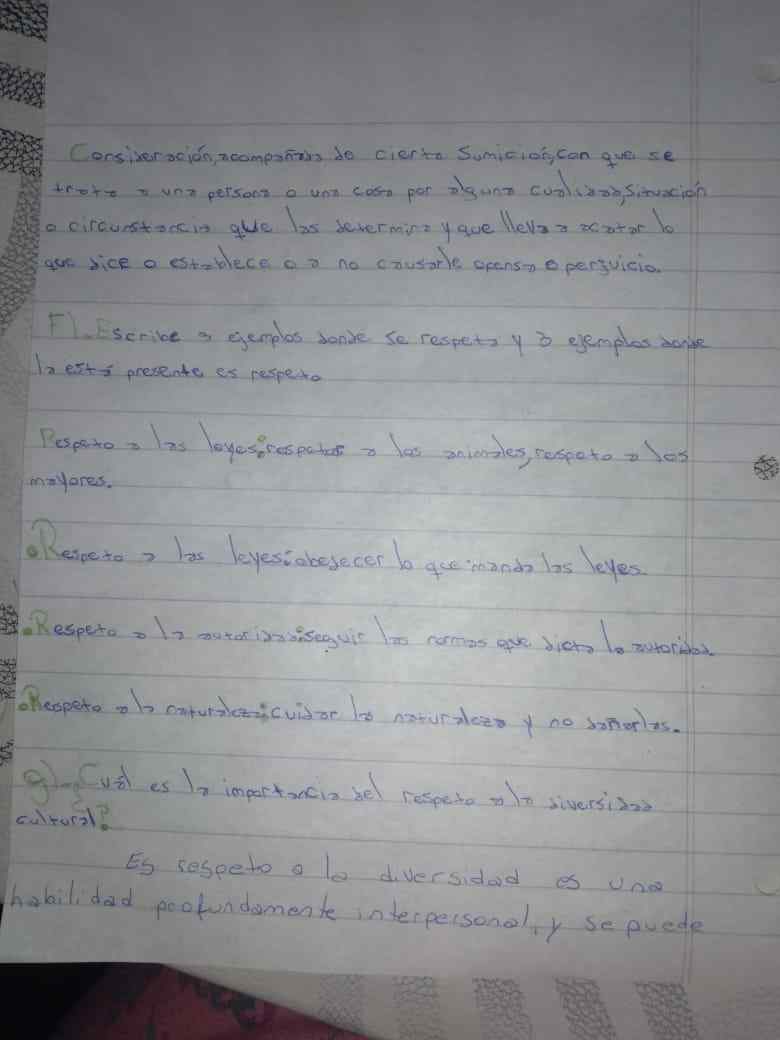 Consideración, acompañada de cierta Sumición, Con que se
trata a una persona o una cosa por alguna cualidad, situación
o circunstancia que las determina y que lleva a acatar lo
que dice o establece o a no causarle opensa o perjuicio.
F). Escribe 3 ejemplos donde se respeta y 3 ejemplos donde
la está presente es respeto
Respeto a las leyes: respetar a los animales, respeto a los
mayores.
• Respeto a las leyes: obedecer lo que manda las leyes.
• Respeto a la autoridad: seguir las normas que dicta la autoridad
• Respeto a la naturaleza: cuidar la naturaleza y no dañarlas.
g). Cuál es la importancia del respeto a la diversidad
cultural?
Es respeto a la diversidad es una
habilidad profundamente interpersonal, y se puede